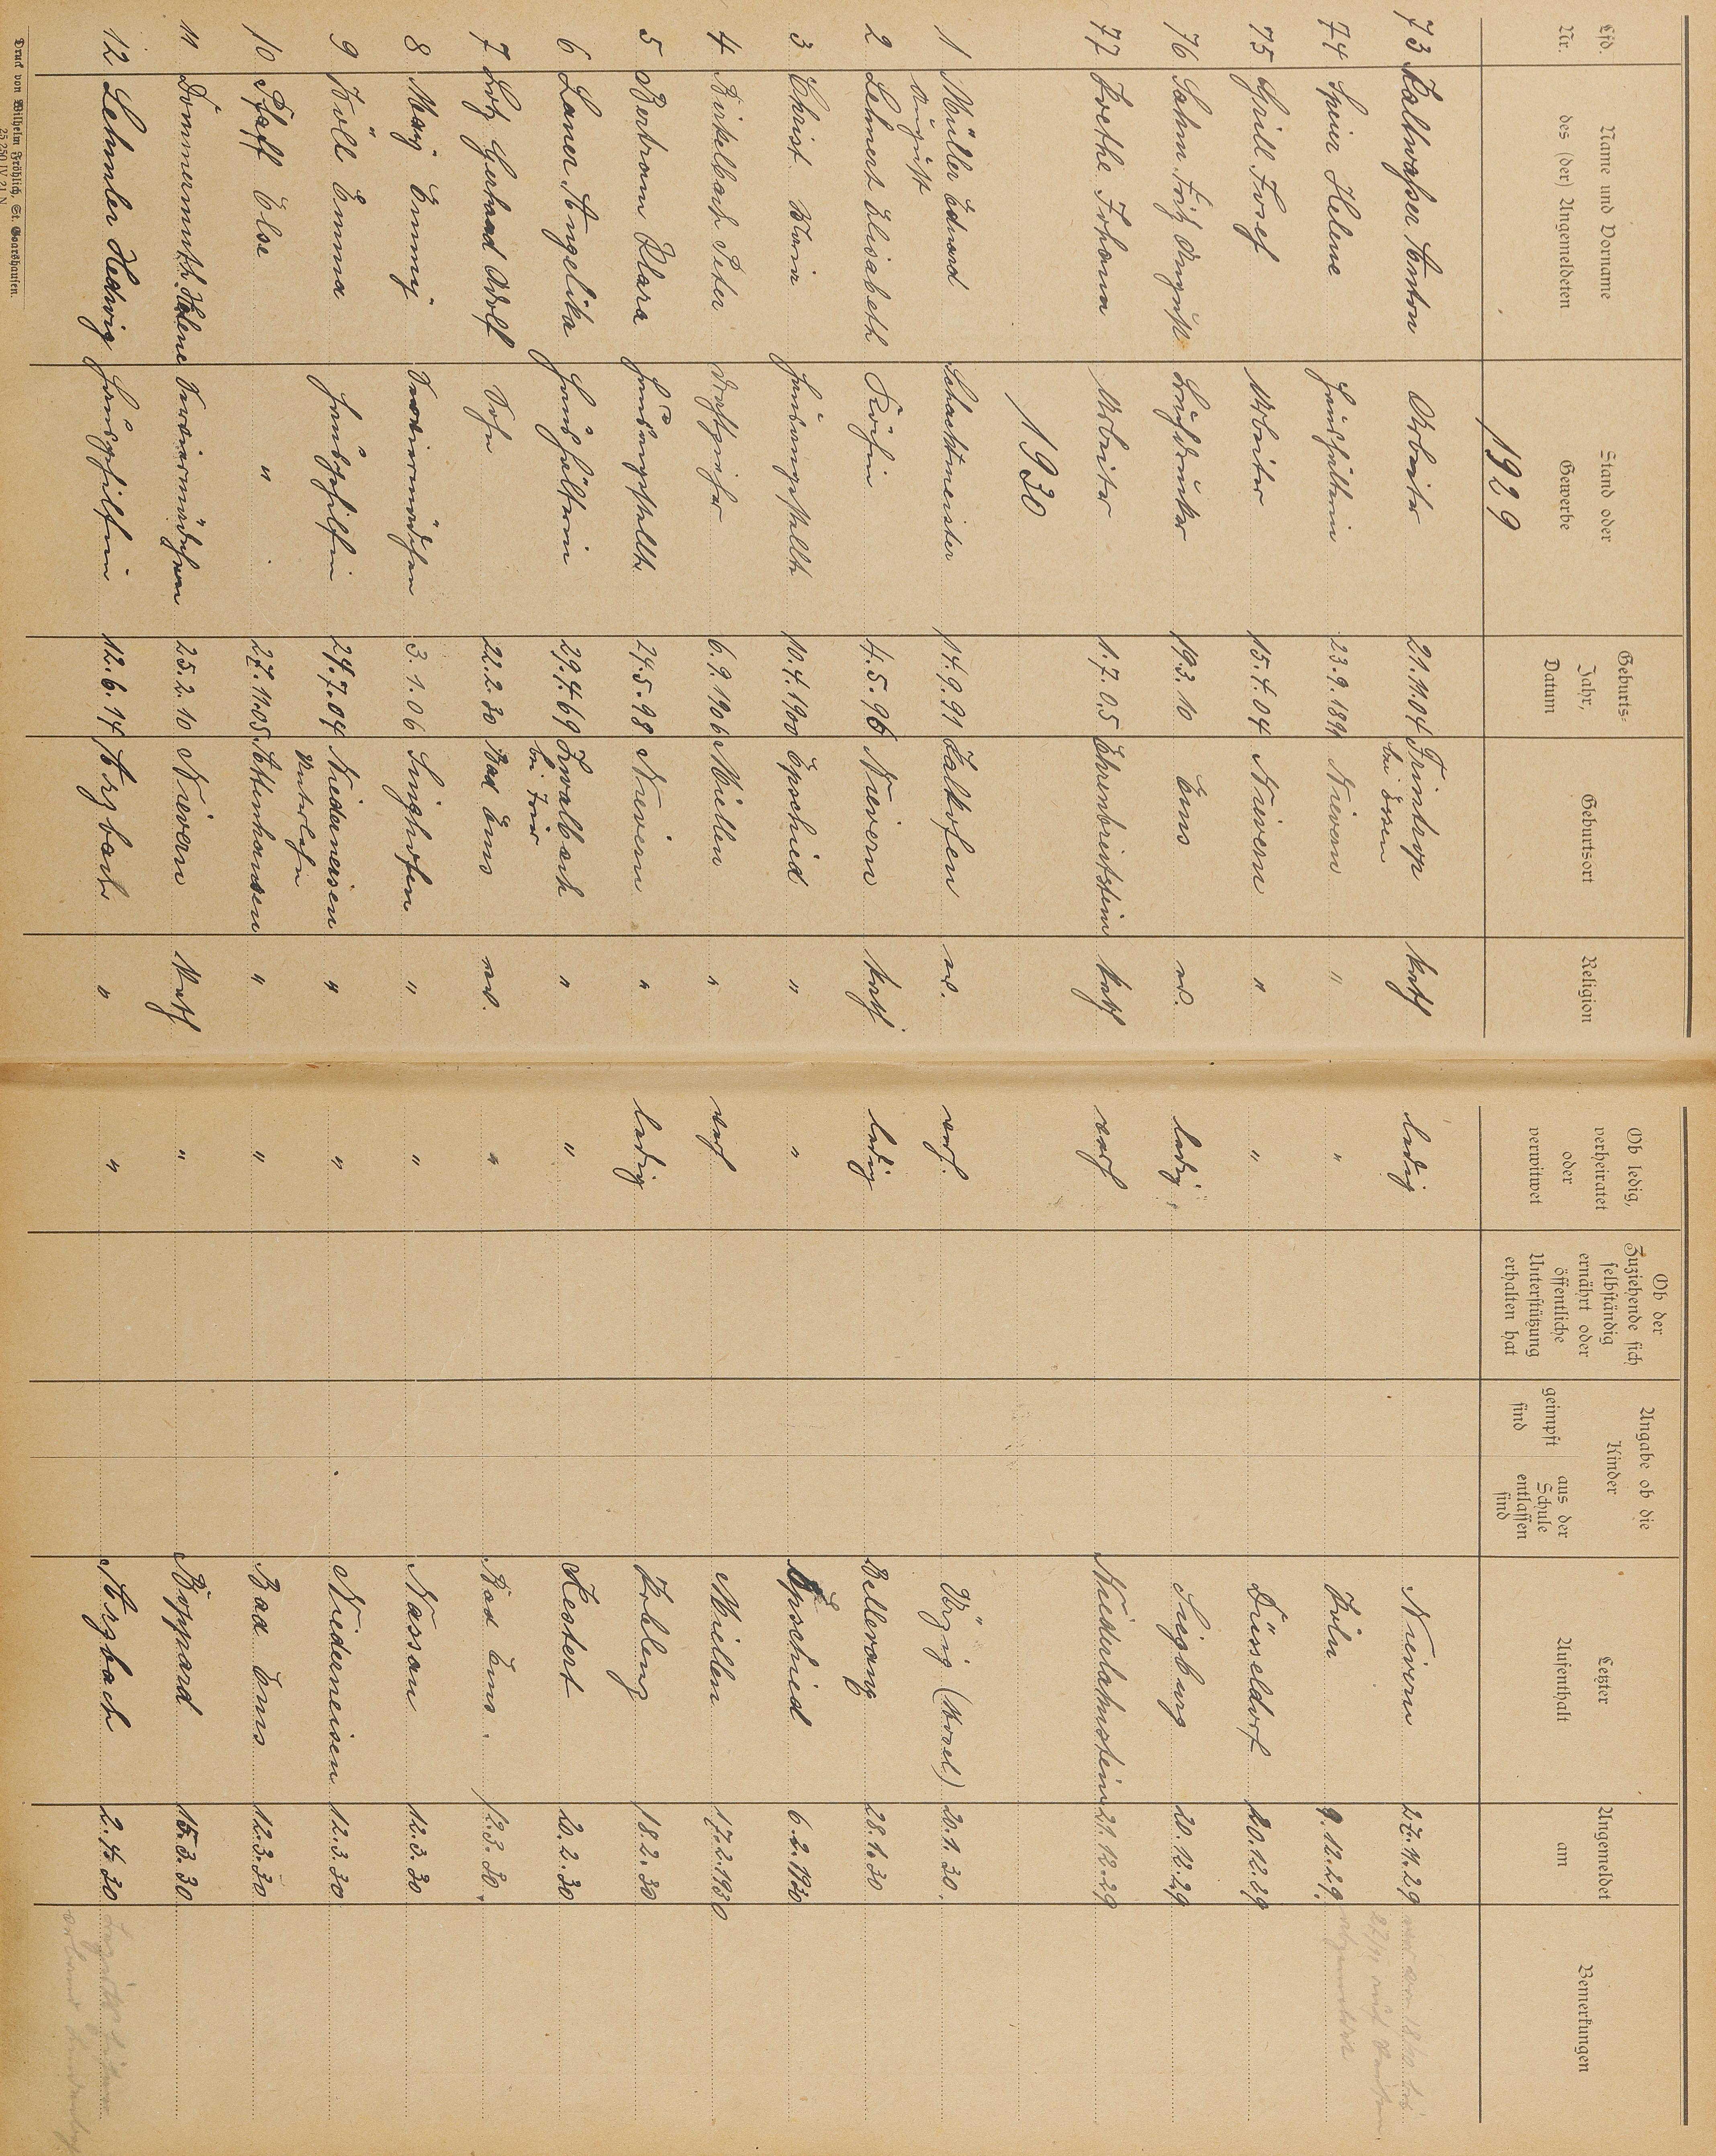 Lfd. Nr. Name und Vorname des (der) Angemeldeten Stand oder Gewerbe Geburts-Jahr, Datum Geburtsort Religion Ob ledig, verheiratet oder verwitwet Ob der Zuziehende sich selbständig ernährt oder öffentliche Unterstützung erhalten hat Angabe ob die Kinder geimpft sind aus der Schule entlassen sind Letzter Aufenthalt Angemeldet am Bemerkungen
1929
73 Kaltwasser Anton Arbeiter 21.11.04 Frintrop bei Essen kath ledig Nievern 27.11.29
74 Speier Helene Haushälterin 23.9.189 Nievern " " Köln 9.12.29
75 Grill Josef Arbeiter 15.4.04 Nievern " " Düsseldorf 20.12.29
76 Sahm Fritz August Buchdrucker 19.3.10 Ems ev. ledig Siegburg 20.12.29
77 Krethe Johann Arbeiter 1.7.05 Ehrenbreitstein kath verh Niederlahnstein 21.12.29
1930
1 Müller Eduard August Schachtmeister 14.9.91 Kalkofen ev. verh. Ürzig (Mosel) 20.1.30.
2 Lehnert Elisabeth Köchin 4.5.96 Nievern kath ledig Bellevang 28.1.30
3 Christ Maria Hausangestellte 10.4.1900 Epschied " " Epschied 6.2.1930
4 Birkelbach Peter 6.9.1906 Miellen " verh Miellen 17.2.1930
5 Bertram Klara Hausangestellte 24.5.98 Nievern " ledig Koblenz 18.2.30
6 Laner Angelika Haushälterin 29.4.69 bei Trier " " Kestert 20.2.30
7 Lotz Gerhard Adolf Sohn 22.2.30 Bad Ems ev. " Bad Ems. 12.3.30.
8 May Emmy Serviermädchen 3.1.06 Singhofen " " Nassau 12.3.30
9 Köll Emma Hausgehilfin 24.7.04 Niederneisen Unterlahn " " Niederneisen 12.3.30
10 Pfaff Else " 27.11.05 Attenhausen " " Bad Ems 12.3.30
11 Dommermuth Helene Serviermädchen 25.2.10 Nievern Kath " Boppard 15.3.30
12 Lehmler Hedwig Hausgehilfin 12.6.14 Arzbach " " Arzbach 2.4.30
Druck von Wilhelm Fröhlich, St. Goarshausen.